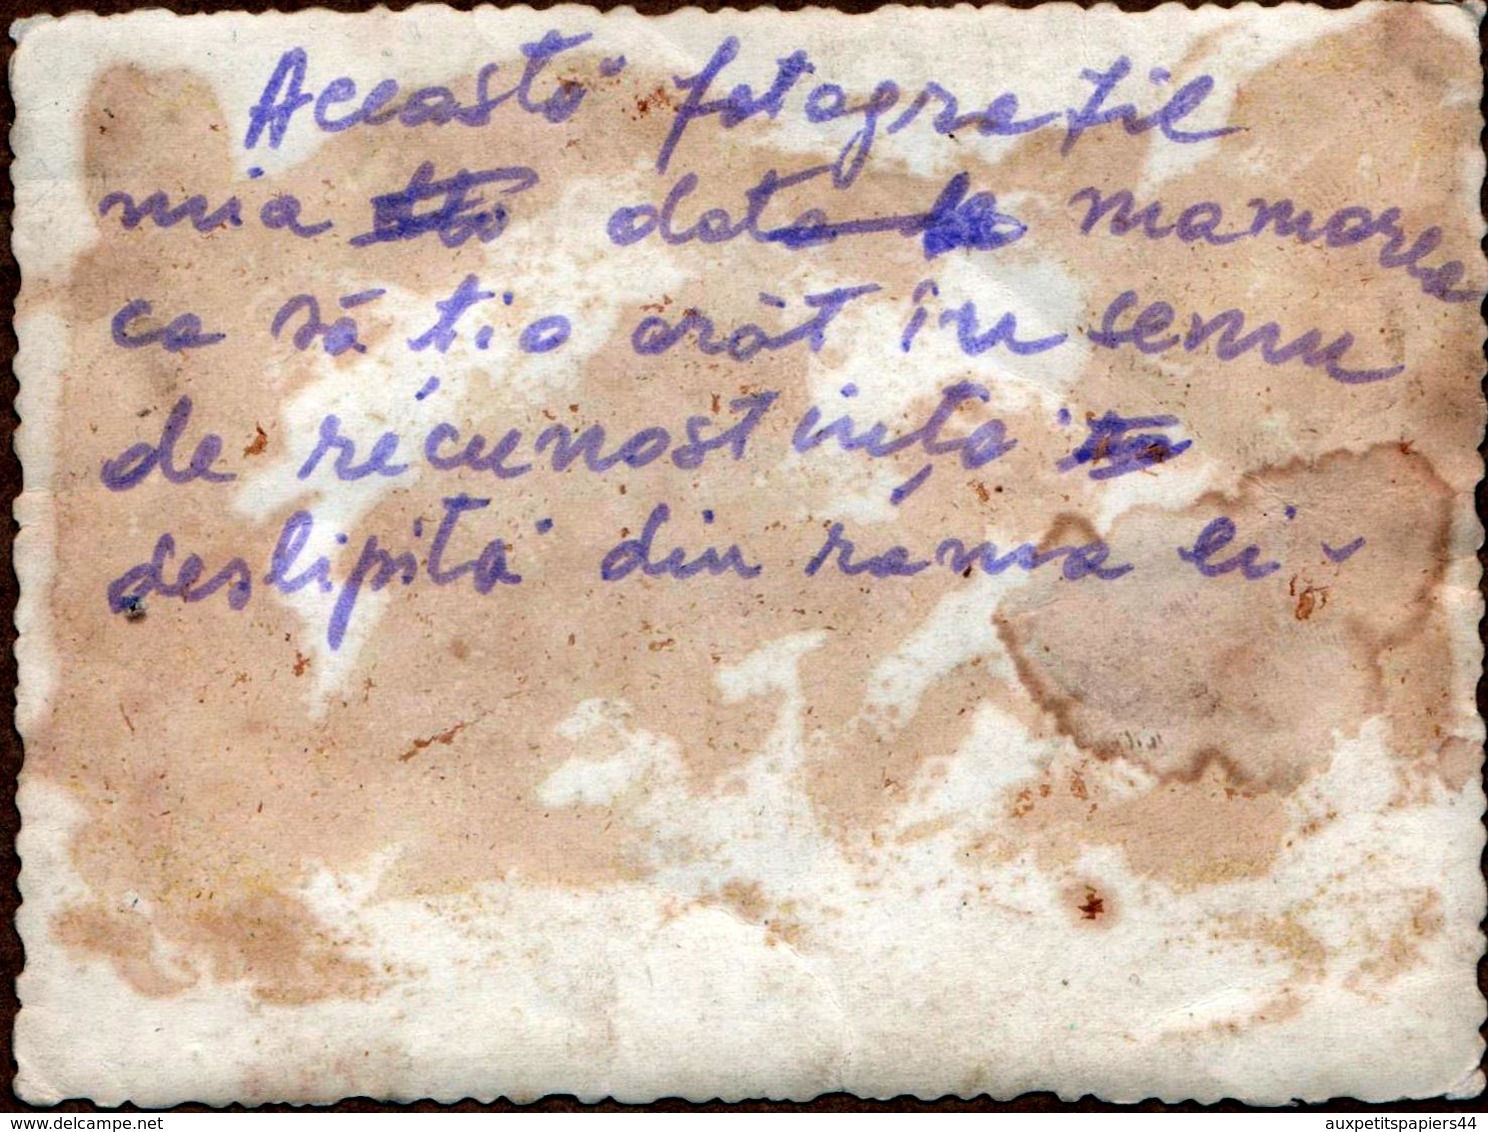 Această fotografie
mia data mamarea
ca să ți o arăt în semn
de recunostință
deslipită din rama ei
delcampe.net
auxpetitspapiers44